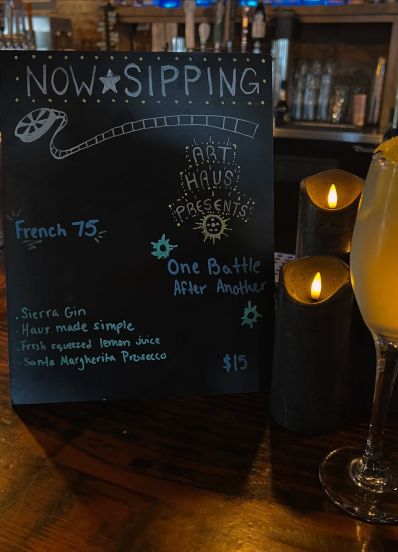 NOW★SIPPING
ART
HAUS
PRESENTS
French 75
One Battle
After Another
. Sierra Gin
. Haus made simple
. Fresh squeezed lemon juice
. Santa Margherita Prosecco
$15